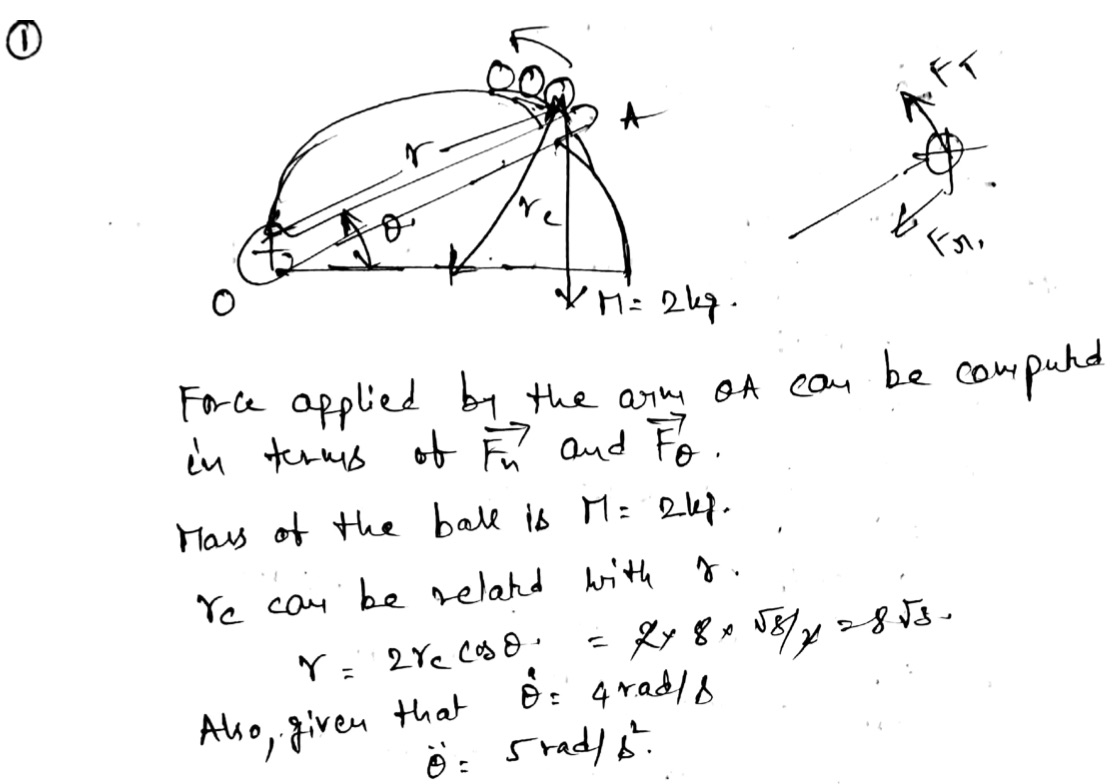 ①
FT
A
r
θ
rc
Fn.
O
M = 2kg.
Force applied by the arm OA can be computed
in terms of Fn and Fθ.
Mass of the ball is M = 2kg.
rc can be related with r.
r = 2rc cosθ. = 2 × 8 × √3/2 = 8√3.
Also, given that θ̇ = 4 rad/s
θ̈ = 5 rad/s².